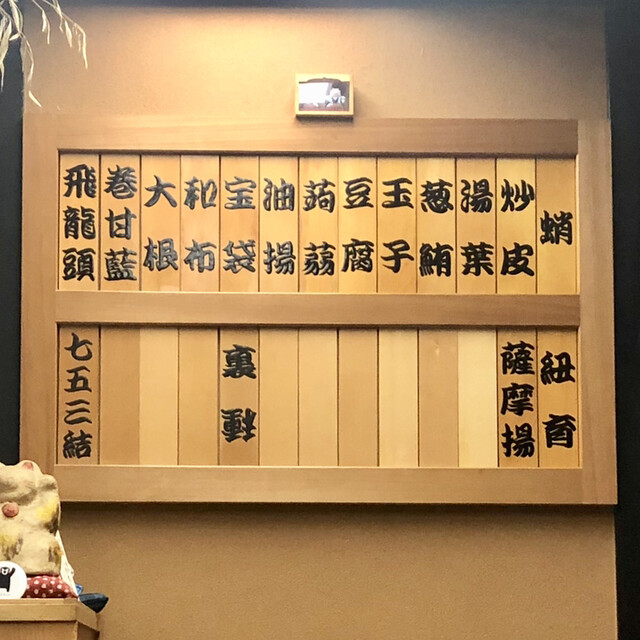 蛸
炒皮
湯葉
葱鮪
玉子
豆腐
蒟蒻
油揚
宝袋
和布
大根
巻甘藍
飛龍頭
紐育
薩摩揚
七五三結